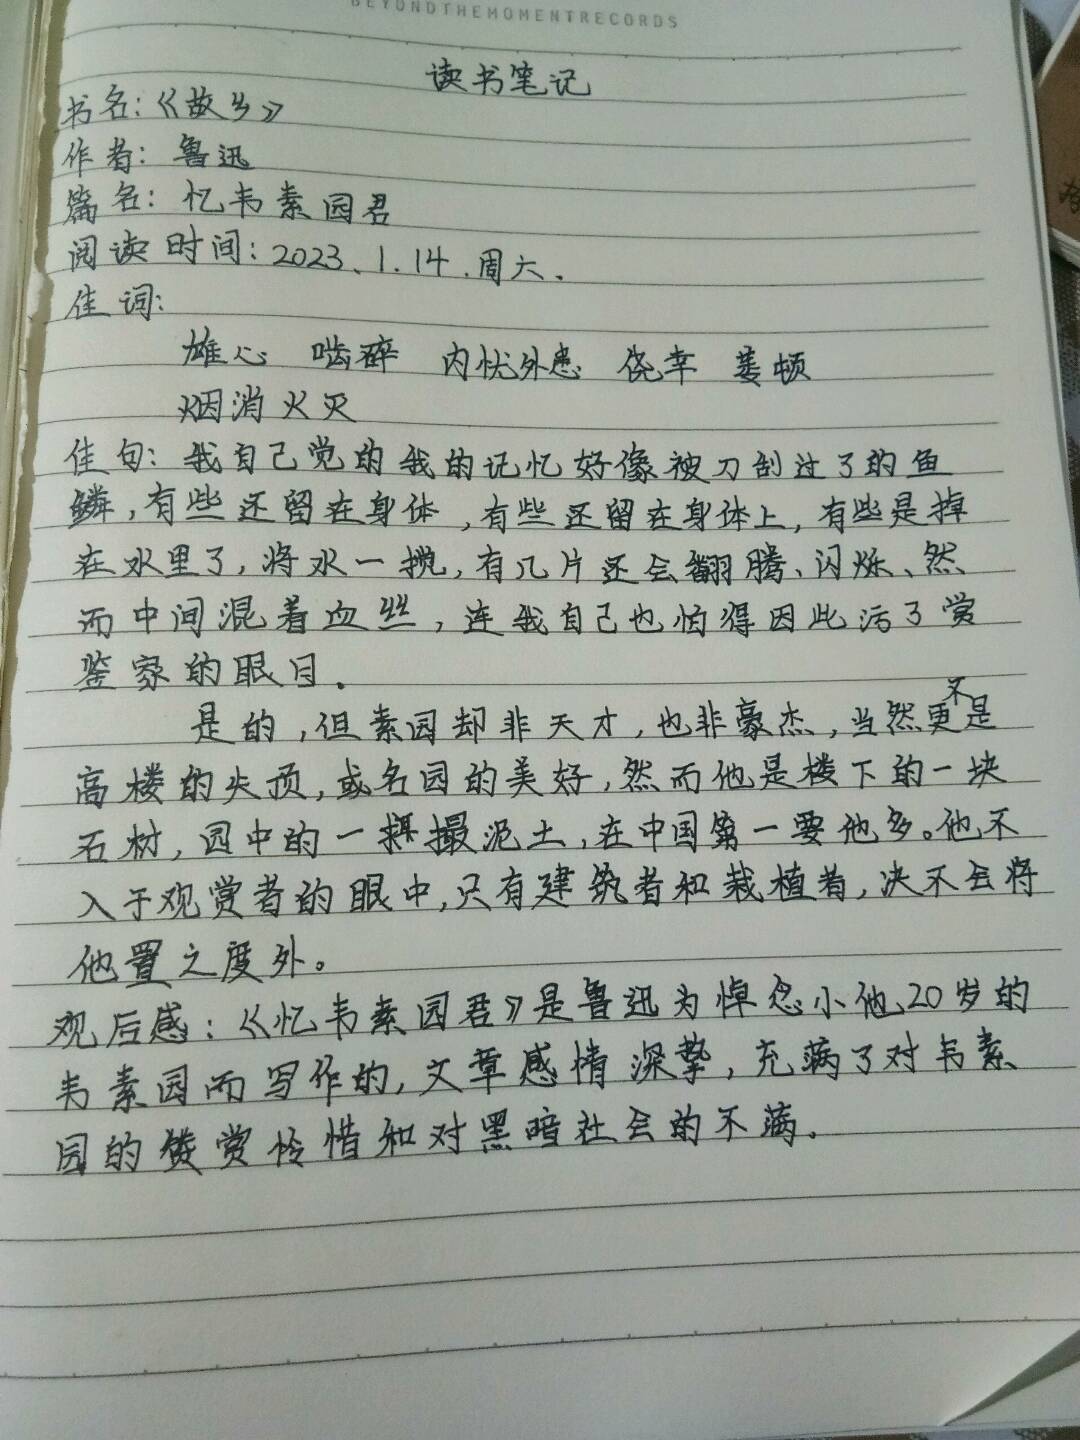 BEYONDTHEMOMENTRECORDS
读书笔记
书名:《故乡》
作者: 鲁迅
篇名: 忆韦素园君
阅读时间: 2023、1.14.周六.
佳词:
雄心 啮碎 内忧外患 侥幸 萎顿
烟消火灭
佳句: 我自己觉的我的记忆好像被刀刮过了的鱼
鳞,有些还留在身体,有些还留在身体上,有些是掉
在水里了,将水一搅,有几片还会翻腾、闪烁、然
而中间混着血丝,连我自己也怕得因此污了赏
鉴家的眼目.
是的,但素园却非天才,也非豪杰,当然更不是
高楼的尖顶,或名园的美好,然而他是楼下的一块
石材,园中的一撮泥土,在中国第一要他多。他不
入于观赏者的眼中,只有建筑者和栽植者,决不会将
他置之度外。
观后感:《忆韦素园君》是鲁迅为悼念小他20岁的
韦素园而写作的,文章感情深挚,充满了对韦素
园的赞赏怜惜和对黑暗社会的不满.